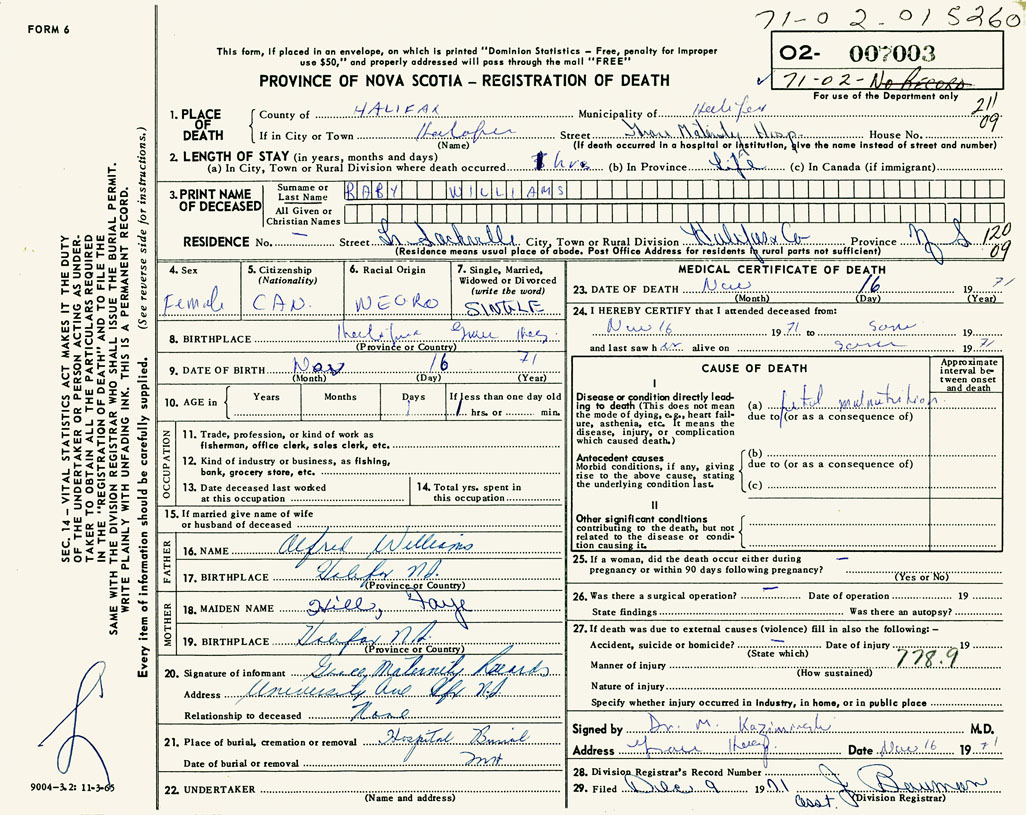 71-02-015260
FORM 6
This form, if placed in an envelope, on which is printed "Dominion Statistics – Free, penalty for improper
use $50," and properly addressed will pass through the mail "FREE"
02- 007003
PROVINCE OF NOVA SCOTIA – REGISTRATION OF DEATH
71-02- No Record
For use of the Department only
211
09
1. PLACE OF DEATH
County of HALIFAX Municipality of Halifax
If in City or Town Halifax Street Grace Maternity Hosp. House No.
(Name) (If death occurred in a hospital or institution, give the name instead of street and number)
2. LENGTH OF STAY (in years, months and days)
(a) In City, Town or Rural Division where death occurred 1 hrs. (b) In Province Life (c) In Canada (if immigrant)
3. PRINT NAME OF DECEASED
Surname or Last Name BABY WILLIAMS
All Given or Christian Names
RESIDENCE No. – Street L. Sackville City, Town or Rural Division Halifax Co Province N S
(Residence means usual place of abode. Post Office Address for residents in rural parts not sufficient)
120
09
4. Sex Female
5. Citizenship (Nationality) CAN.
6. Racial Origin NEGRO
7. Single, Married, Widowed or Divorced (write the word) SINGLE
8. BIRTHPLACE Halifax Grace
(Province or Country)
9. DATE OF BIRTH Nov 16 71
(Month) (Day) (Year)
10. AGE in Years Months Days If less than one day old
1 hrs. or min.
OCCUPATION
11. Trade, profession, or kind of work as
fisherman, office clerk, sales clerk, etc.
12. Kind of industry or business, as fishing,
bank, grocery store, etc.
13. Date deceased last worked
at this occupation
14. Total yrs. spent in
this occupation
15. If married give name of wife
or husband of deceased
FATHER
16. NAME Alfred Williams
17. BIRTHPLACE Halifax N.S.
(Province or Country)
MOTHER
18. MAIDEN NAME Hill, Faye
19. BIRTHPLACE Halifax N.S.
(Province or Country)
20. Signature of informant Grace Maternity Records
Address University Ave Hfx N.S
Relationship to deceased None
21. Place of burial, cremation or removal Hospital Burial
Date of burial or removal
22. UNDERTAKER
(Name and address)
MEDICAL CERTIFICATE OF DEATH
23. DATE OF DEATH Nov 16 1971
(Month) (Day) (Year)
24. I HEREBY CERTIFY that I attended deceased from:
Nov 16 1971 to same 19
and last saw her alive on same 1971
CAUSE OF DEATH
Approximate interval between onset and death
I
Disease or condition directly leading to death (This does not mean the mode of dying, e.g., heart failure, asthenia, etc. It means the disease, injury, or complication which caused death.)
(a) fetal malnutrition
due to (or as a consequence of)
Antecedent causes
Morbid conditions, if any, giving rise to the above cause, stating the underlying condition last.
(b)
due to (or as a consequence of)
(c)
II
Other significant conditions
contributing to the death, but not related to the disease or condition causing it.
25. If a woman, did the death occur either during
pregnancy or within 90 days following pregnancy? –
(Yes or No)
26. Was there a surgical operation? – Date of operation 19
State findings Was there an autopsy?
27. If death was due to external causes (violence) fill in also the following: –
Accident, suicide or homicide? – Date of injury 19
(State which)
778.9
Manner of injury
(How sustained)
Nature of injury
Specify whether injury occurred in industry, in home, or in public place
Signed by Dr. M. M.D.
Address Grace Date Nov 16 1971
28. Division Registrar's Record Number
29. Filed Dec 9 1971 J Bauman
asst. (Division Registrar)
SEC. 14 – VITAL STATISTICS ACT MAKES IT THE DUTY
OF THE UNDERTAKER OR PERSON ACTING AS UNDER-
TAKER TO OBTAIN ALL THE PARTICULARS REQUIRED
IN THE "REGISTRATION OF DEATH" AND TO FILE THE
SAME WITH THE DIVISION REGISTRAR WHO SHALL ISSUE THE BURIAL PERMIT.
WRITE PLAINLY WITH UNFADING INK. THIS IS A PERMANENT RECORD.
Every item of information should be carefully supplied. (See reverse side for instructions.)
9004-3.2: 11-3-65